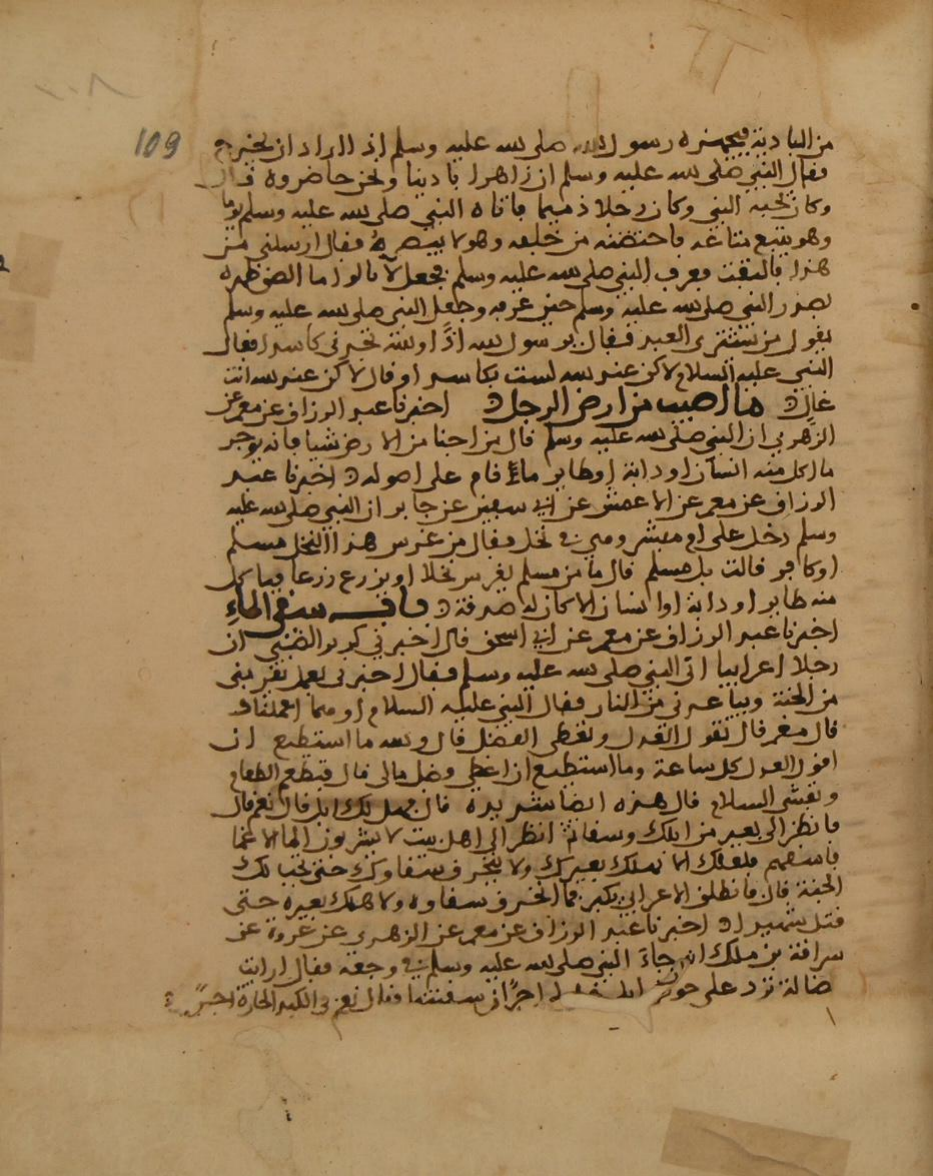 109
من البادية فيجهزه رسول الله صلى الله عليه وسلم اذا اراد ان يخرج
فقال النبي صلى الله عليه وسلم ان زاهرا بادينا ونحن حاضروه قال
وكان يحبه النبي وكان رجلا ذميما فاتاه النبي صلى الله عليه وسلم يوما
وهو يبيع متاعه فاحتضنه من خلفه وهو لا يبصره فقال ارسلني من
هذا فالتفت فعرف النبي صلى الله عليه وسلم فجعل لا يالوا ما الصق ظهره
بصدر النبي صلى الله عليه وسلم حين عرفه وجعل النبي صلى الله عليه وسلم
يقول من يشتري العبد فقال يرسول الله اذا والله تجدني كاسدا فقال
النبي عليه السلام لاكن عند الله لست بكاسد او قال لاكن عند الله انت
غال ما اصيب من ارض الرجل اخبرنا عبد الرزاق عن معمر عن
الزهري ان النبي صلى الله عليه وسلم قال من احيا من الارض شيا فانه يوجر
ما اكل منه انسان او دابة او طاير ما قام على اصوله اخبرنا عبد
الرزاق عن معمر عن الاعمش عن ابي سفين عن جابر ان النبي صلى الله عليه
وسلم دخل على ام مبشر وهي في نخل فقال من غرس هذا النخل مسلم
او كافر قالت بل مسلم قال ما من مسلم يغرس نخلا او يزرع زرعا فياكل
منه طاير او دابة او انسان الا كان له صدقة باب سقي الماء
اخبرنا عبد الرزاق عن معمر عن ابي اسحق قال اخبرني كدير الضبي ان
رجلا اعرابيا اتى النبي صلى الله عليه وسلم فقال اخبرني بعمل يقربني
من الجنة ويباعدني من النار فقال النبي عليه السلام او هما اعملتاك
قال نعم قال تقول العدل وتعطي الفضل قال والله ما استطيع ان
اقول العدل كل ساعة وما استطيع ان اعطي فضل مالي قال فتطعم الطعام
وتفشي السلام قال هذه ايضا شديدة قال فهل لك ابل قال نعم قال
فانظر الى بعير من ابلك وسقا ثم انظر الى اهل بيت لا يشربون الما الا غبا
فاسقهم فلعلك الا تهلك بعيرك ولا ينخرق سقاوك حتى تجب لك
الجنة قال فانطلق الاعرابي يكبر فما انخرق سقاوه ولا هلك بعيره حتى
قتل شهيدا اخبرنا عبد الرزاق عن معمر عن الزهري عن عروة عن
سراقة بن ملك انه جاء النبي صلى الله عليه وسلم في وجعه فقال ارايت
ضالة ترد على حوض ابلي اجرا ان سقيتها فقال نعم في الكبد الحارة اجر